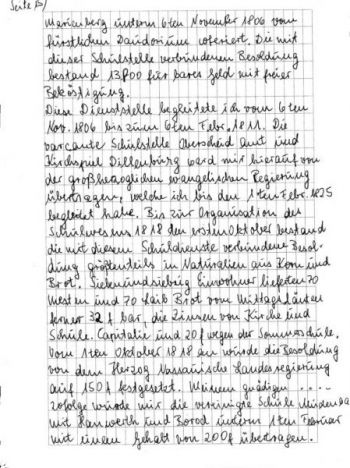 Seite B)
Marienberg unterm 6ten November 1806 vom
fürstlichen Daudorium oferiert. Die mit
dieser Schulstelle verbundenen Besoldung
bestand für bares Geld mit freier
Beköstigung.
Diese Dienststelle begleitete ich vom 6ten
Nov. 1806 bis zum 6ten Febr. 1811. Die
varcante Schulstelle Oberscheid Amt und
Kirchspiel Dillenburg ward mir hierauf von
der großherzoglichen evangelischen Regierung
übertragen, welche ich bis den 1ten Febr. 1825
begleidet habe. Bis zur Organisation des
Schulwesens 1818 den ersten Oktober bestand
die mit diesem Schuldienste verbundene Besol-
dung größtenteils in Naturalien aus Korn und
Brot. Siebenundsiebzig Einwohner lieferten 70
Mesten und 70 Laib Brot vom
ferner 32 f. bar, die Zinsen von Kirche und
Schule. Capitalie und 20 f wegen der Sommerschule.
Vom 1ten Oktober 1818 an wurde die Besoldung
von dem Herzog Nassauische Landesregierung
auf 150 f festgesetzt. Meinem gnädigen ....
zofolge wurde mir die vereinigte Schule
mit Hanwerth und Borod unterm 1ten Februar
mit einem Gehalt von 200 f übertragen.